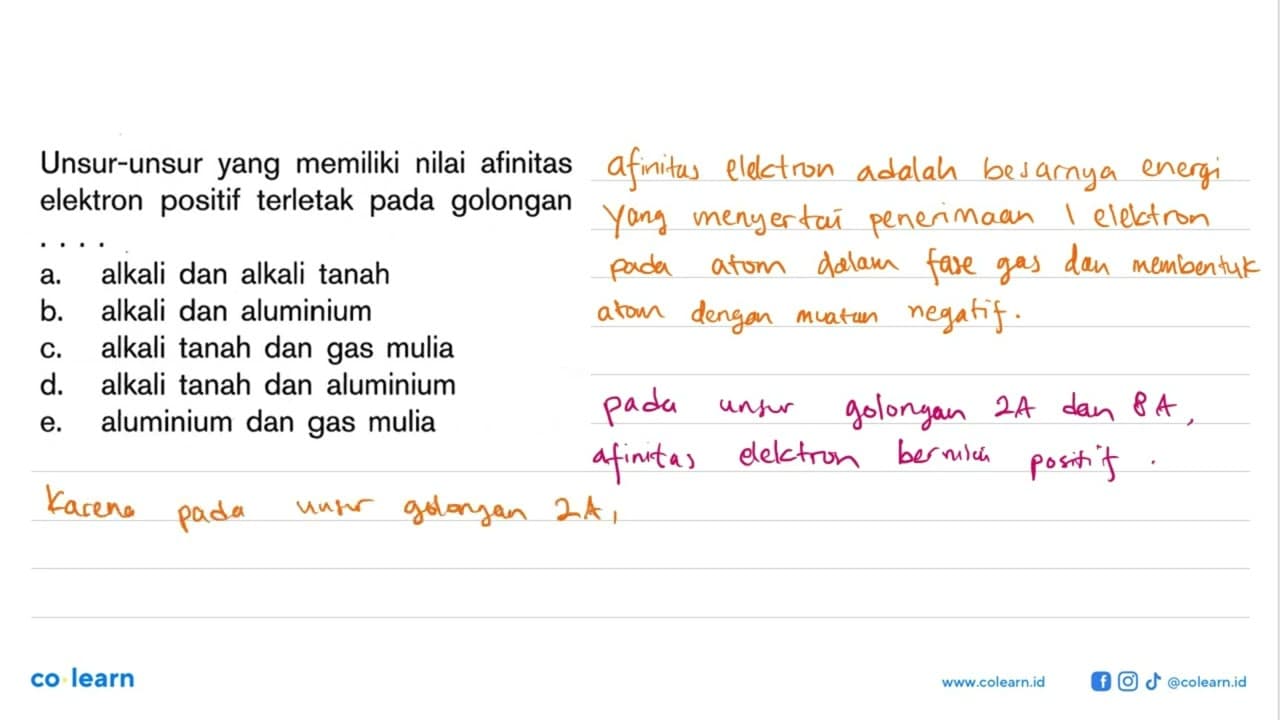 Unsur-unsur yang memiliki nilai afinitas
elektron positif terletak pada golongan
. . . .
a. alkali dan alkali tanah
b. alkali dan aluminium
c. alkali tanah dan gas mulia
d. alkali tanah dan aluminium
e. aluminium dan gas mulia
afinitas elektron adalah besarnya energi
yang menyertai penerimaan 1 elektron
pada atom dalam fase gas dan membentuk
atom dengan muatan negatif.
pada unsur golongan 2A dan 8A,
afinitas elektron bernilai positif.
Karena pada unsur golongan 2A,
co learn
www.colearn.id
@colearn.id